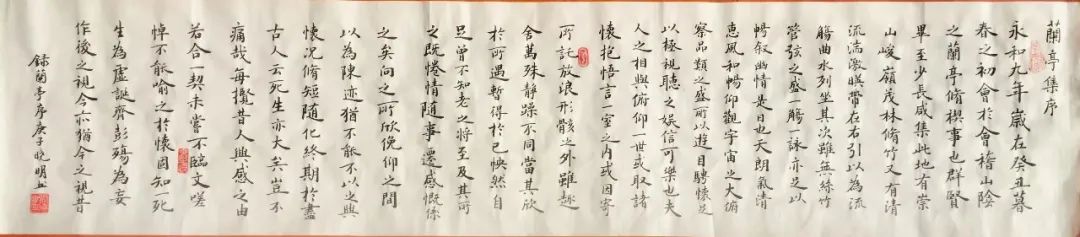 蘭亭集序
永和九年歲在癸丑暮
春之初會於會稽山陰
之蘭亭脩禊事也群賢
畢至少長咸集此地有崇
山峻嶺茂林脩竹又有清
流湍激暎帶左右引以為流
觴曲水列坐其次雖無絲竹
管弦之盛一觴一詠亦足以
暢叙幽情是日也天朗氣清
惠風和暢仰觀宇宙之大俯
察品類之盛所以遊目騁懷足
以極視聽之娛信可樂也夫
人之相與俯仰一世或取諸
懷抱悟言一室之內或因寄
所託放浪形骸之外雖趣
舍萬殊靜躁不同當其欣
於所遇暫得於己怏然自
足曾不知老之將至及其所
之既惓情隨事遷感慨係
之矣向之所欣俛仰之間
以為陳迹猶不能不以之興
懷況脩短隨化終期於盡
古人云死生亦大矣豈不
痛哉每攬昔人興感之由
若合一契未嘗不臨文嗟
悼不能喻之於懷固知一死
生為虛誕齊彭殤為妄
作後之視今亦猶今之視昔
錄蘭亭序庚子曉明書